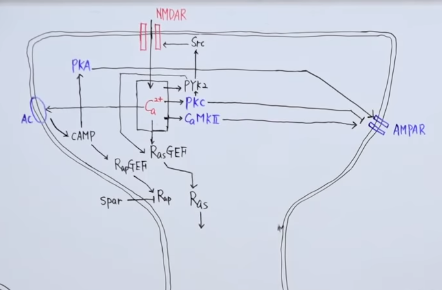 NMDAR
Src
PKA
PYK2
Ca²⁺
PKC
CaMKII
AC
AMPAR
cAMP
RasGEF
RapGEF
Spar
Rap
Ras